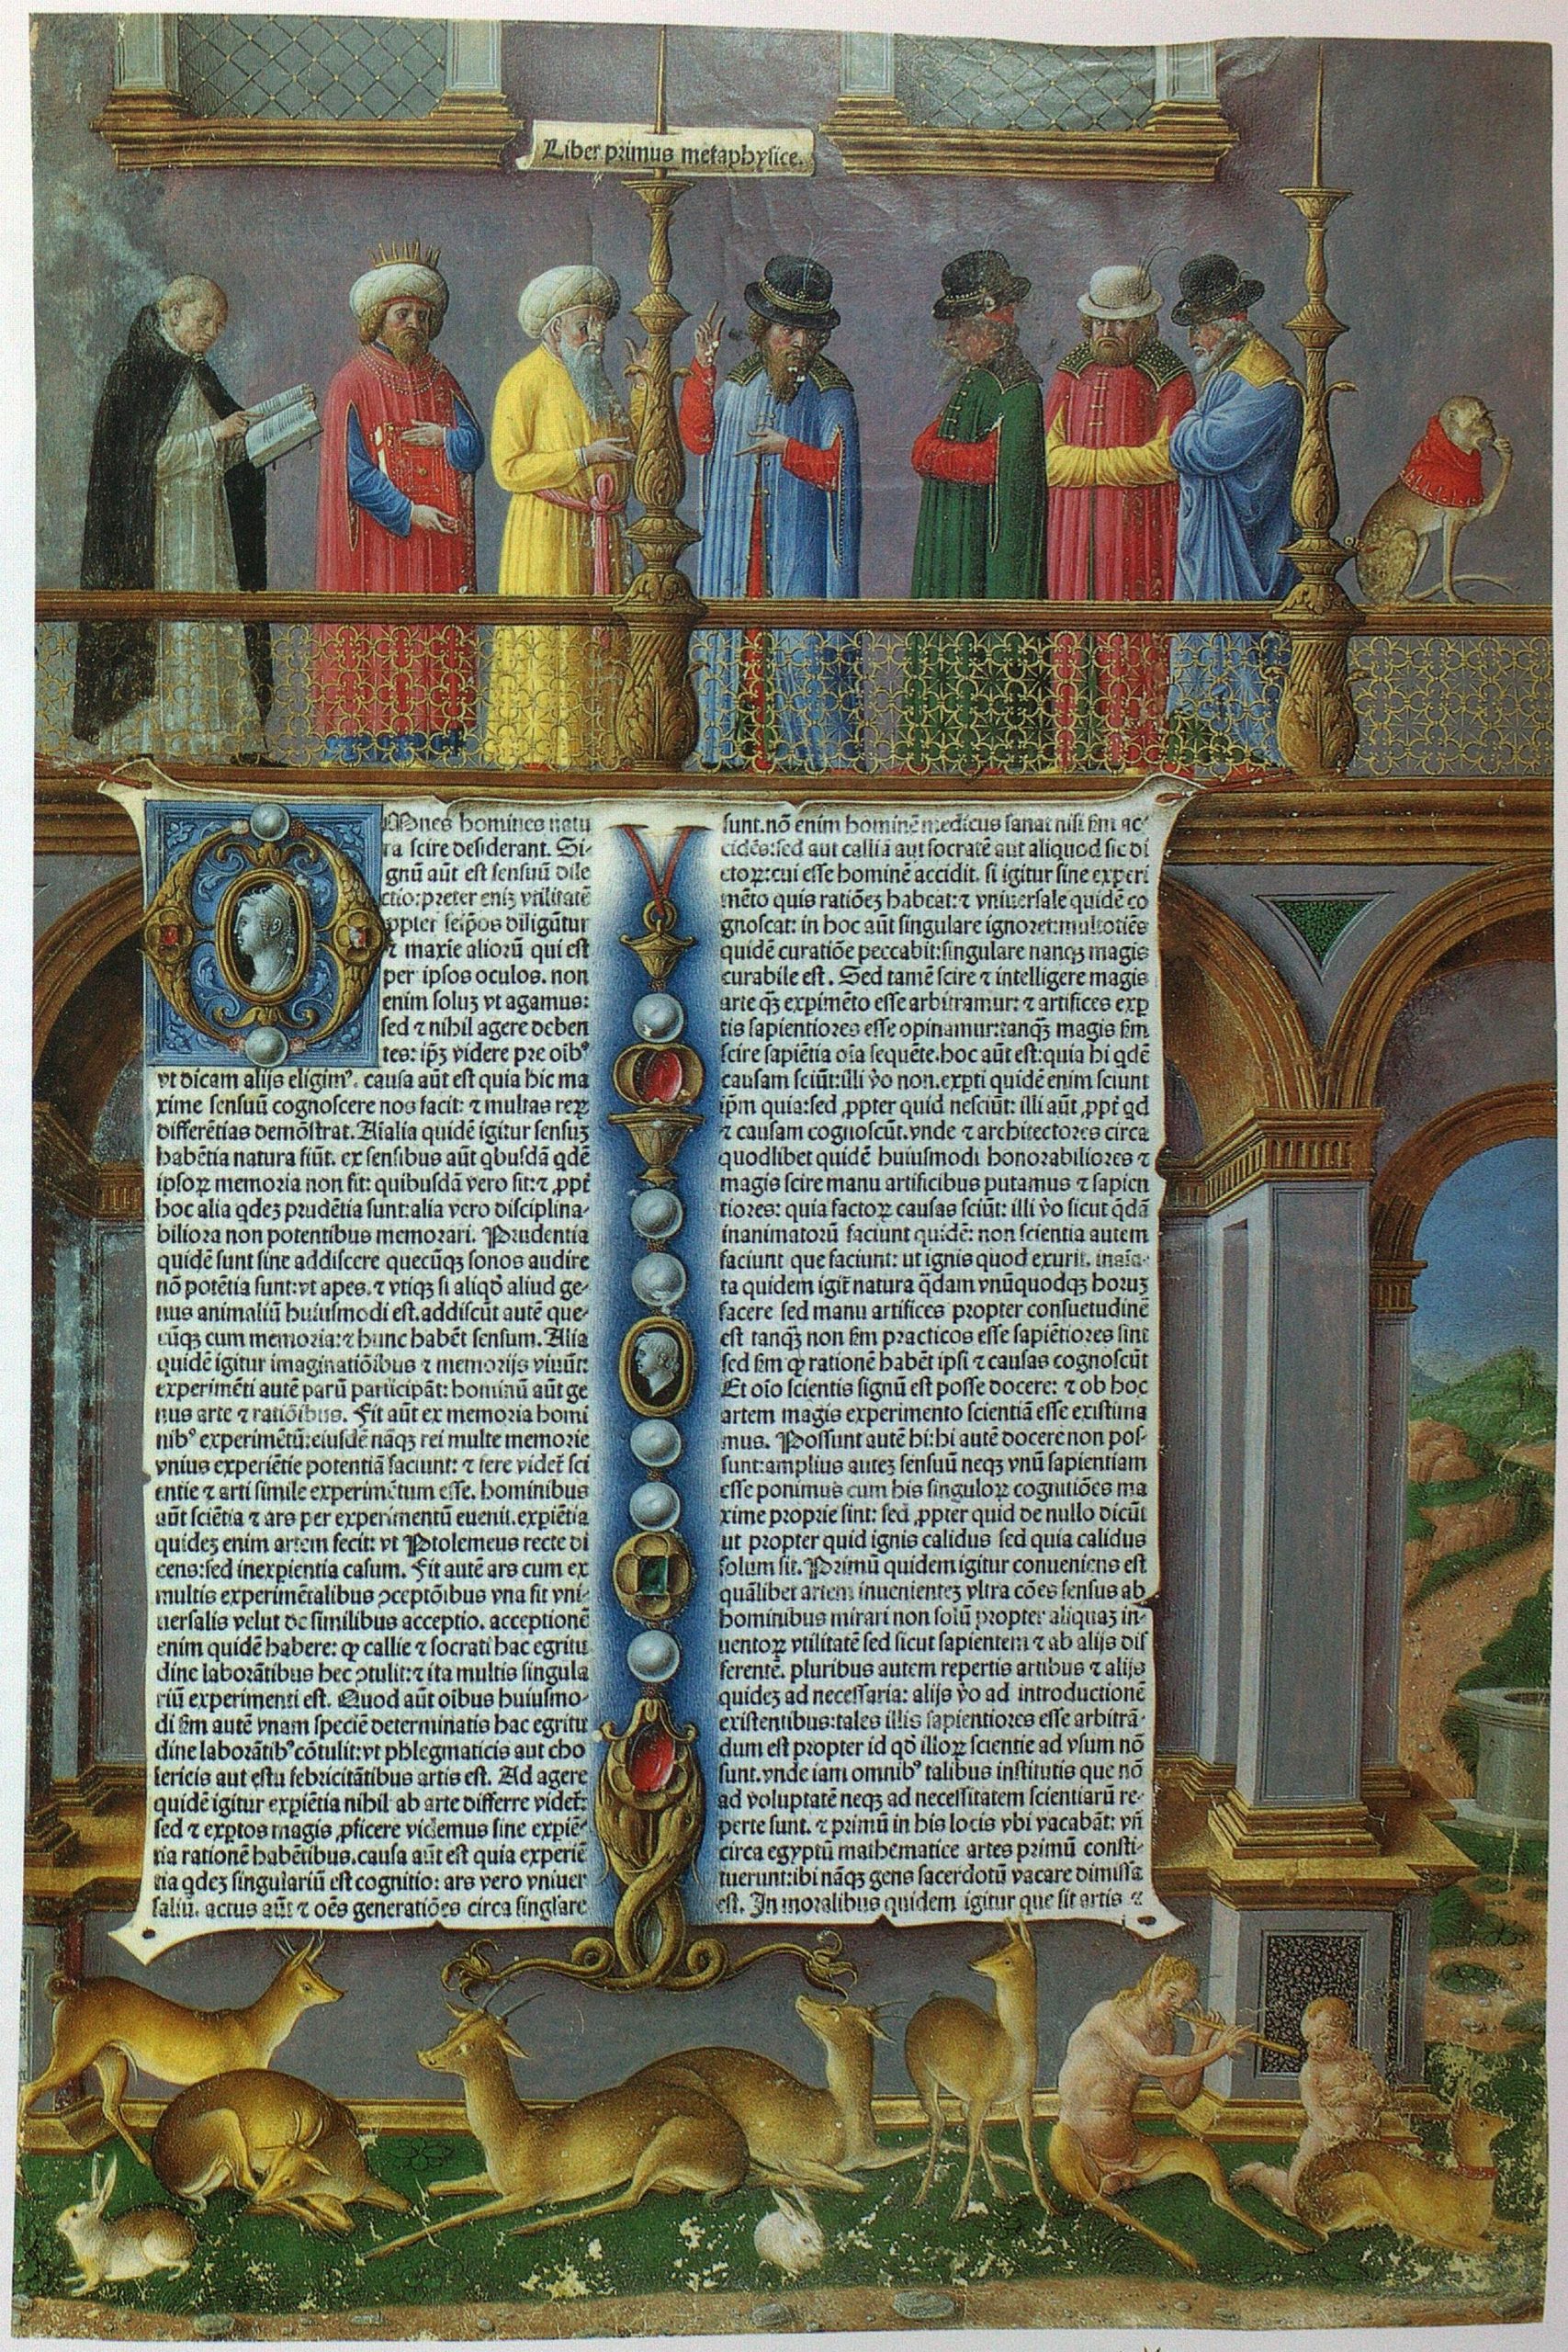 Liber primus metaphysice.
Omnes homines natu
ra scire desiderant. Si-
gnũ aũt est sensuũ dile
ctio: preter eniꝫ vtilitatẽ
ꝓpter seip̃os diligũtur
⁊ maxie aliorũ qui est
per ipsos oculos. non
enim soluꝫ vt agamus:
sed ⁊ nihil agere deben
tes: ip̃ꝫ videre pre oibꝰ
vt dicam alijs eligimꝰ. causa aũt est quia hic ma
xime sensuũ cognoscere nos facit: ⁊ multas reꝝ
differẽtias demõstrat. Aialia quidẽ igitur sensuꝫ
habẽtia natura fiũt. ex sensibus aũt qbusdã qdẽ
ipsoꝝ memoria non fit: quibusdã vero fit: ⁊ ꝓpt̃
hoc alia qdeꝫ prudẽtia sunt: alia vero disciplina-
biliora non potentibus memorari. Prudentia
quidẽ sunt sine addiscere quecũqꝫ sonos audire
nõ potẽtia sunt: vt apes. ⁊ vtiqꝫ si aliqď aliud ge-
nus animaliũ huiusmodi est. addiscũt autẽ que-
cũqꝫ cum memoria: ⁊ hunc habẽt sensum. Alia
quidẽ igitur imaginatiõibus ⁊ memorijs viuũt:
experimẽti autẽ parũ participãt: hominũ aũt ge
nus arte ⁊ ratiõibus. Fit aũt ex memoria homi
nibꝰ experimẽtũ: eiusdẽ nãqꝫ rei multe memorie
vnius experiẽtie potentiã faciunt: ⁊ fere videt̃ sci
entie ⁊ arti simile experimẽtum esse. hominibus
aũt sciẽtia ⁊ ars per experimentũ euenit. expiẽtia
quideꝫ enim artem fecit: vt Ptolemeus recte di
cens: sed inexpientia casum. Fit autẽ ars cum ex
multis experimẽtalibus ꝯceptõibus vna fit vni-
uersalis velut de similibus acceptio. acceptionẽ
enim quidẽ habere: ꝙ callie ⁊ socrati hac egritu
dine laborãtibus hec ꝯtulit: ⁊ ita multis singula
riũ experimenti est. Quod aũt oibus huiusmo-
di s̃m autẽ vnam speciẽ determinatis hac egritu
dine laborãtibꝰ cõtulit: vt phlegmaticis aut cho
lericis aut estu febricitãtibus artis est. Ad agere
quidẽ igitur expiẽtia nihil ab arte differre videt̃:
sed ⁊ exptos magis ꝓficere videmus sine expiẽ-
tia rationẽ habẽtibus. causa aũt est quia experiẽ
tia qdeꝫ singulariũ est cognitio: ars vero vniuer
saliũ. actus aũt ⁊ oẽs generatiões circa singlare
sunt. nõ enim hominẽ medicus sanat nisi s̃m ac-
cidẽs: sed aut calliã aut socratẽ aut aliquod sic di
ctoꝝ: cui esse hominẽ accidit. si igitur sine experi
mẽto quis ratiõeꝫ habeat: ⁊ vniuersale quidẽ co
gnoscat: in hoc aũt singulare ignoret: multotiẽs
quidẽ curatiõe peccabit: singulare nancꝫ magis
curabile est. Sed tamẽ scire ⁊ intelligere magis
arte qꝫ expimẽto esse arbitramur: ⁊ artifices exp
tis sapientiores esse opinamur: tanqꝫ magis s̃m
scire sapiẽtia oĩa sequẽte. hoc aũt est: quia hi qdẽ
causam sciũt: illi ṽo non. expti quidẽ enim sciunt
ip̃m quia: sed ꝓpter quid nesciũt: illi aũt ꝓpt̃ qd
⁊ causam cognoscũt. vnde ⁊ architectores circa
quodlibet quidẽ huiusmodi honorabiliores ⁊
magis scire manu artificibus putamus ⁊ sapien
tiores: quia factoꝝ causas sciũt: illi ṽo sicut qdã
inanimatorũ faciunt quidẽ: non scientia autem
faciunt que faciunt: ut ignis quod exurit. inaĩa-
ta quidem igit̃ natura qdam vnũquodqꝫ horuꝫ
facere sed manu artifices propter consuetudinẽ
est tanqꝫ non s̃m practicos esse sapiẽtiores sint
sed s̃m ꝙ rationẽ habẽt ipsi ⁊ causas cognoscũt
Et oĩo scientis signũ est posse docere: ⁊ ob hoc
artem magis experimento scientiã esse existima
mus. Possunt autẽ hi: hi autẽ docere non pos-
sunt: amplius auteꝫ sensuũ neqꝫ vnũ sapientiam
esse ponimus cum his singuloꝝ cognitiões ma
xime proprie sint: sed ꝓpter quid de nullo dicũt
ut propter quid ignis calidus sed quia calidus
solum sit. Primũ quidem igitur conueniens est
quãlibet artem inuenienteꝫ vltra cões sensus ab
hominibus mirari non solũ propter aliquaꝫ in-
uentoꝝ vtilitatẽ sed sicut sapientem ⁊ ab alijs dif
ferentẽ. pluribus autem repertis artibus ⁊ alijs
quideꝫ ad necessaria: alijs ṽo ad introductionẽ
existentibus: tales illis sapientiores esse arbitrã-
dum est propter id qď illoꝝ scientie ad vsum nõ
sunt. vnde iam omnibꝰ talibus institutis que nõ
ad voluptatẽ neqꝫ ad necessitatem scientiarũ re-
perte sunt. ⁊ primũ in his locis vbi vacabãt: vñ
circa egyptũ mathematice artes primũ consti-
tuerunt: ibi nãqꝫ gens sacerdotũ vacare dimissa
est. In moralibus quidem igitur que sit artis ⁊